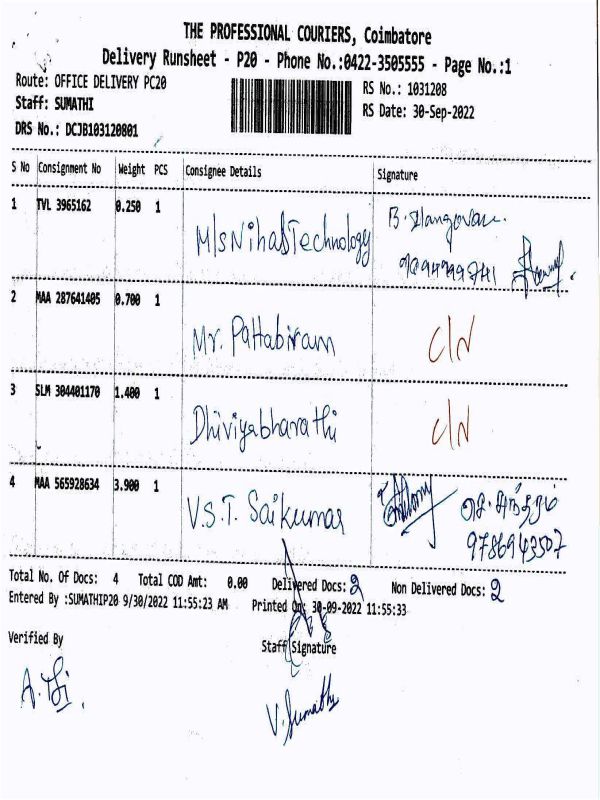 THE PROFESSIONAL COURIERS, Coimbatore
Delivery Runsheet - P20 - Phone No.:0422-3505555 - Page No.:1
Route: OFFICE DELIVERY PC20
RS No.: 1031208
Staff: SUMATHI
RS Date: 30-Sep-2022
DRS No.: DCJB103120801
S No Consignment No Weight PCS Consignee Details Signature
1 TVL 3965162 0.250 1 M/s Nihas Technology B. Elangovan.
2 MAA 287641405 0.700 1 Mr. Pattabiram C/N
3 SLM 304401170 1.400 1 Dhiviyabharathi C/N
4 MAA 565928634 3.900 1 V.S.T. Saikumar
9786943507
Total No. Of Docs: 4 Total COD Amt: 0.00 Delivered Docs: 2 Non Delivered Docs: 2
Entered By :SUMATHIP20 9/30/2022 11:55:23 AM Printed On: 30-09-2022 11:55:33
Verified By
Staff Signature
V. Sumathi